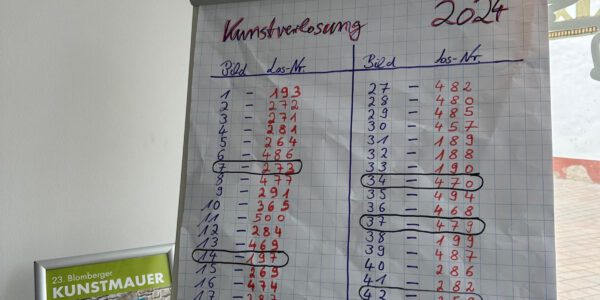 Kunstverlosung 2024
Bild Los-Nr.
1 - 193
2 - 272
3 - 271
4 - 281
5 - 264
6 - 486
7 - 273
8 - 477
9 - 291
10 - 365
11 - 500
12 - 284
13 - 469
14 - 197
15 - 269
16 - 474
17 - 287
Bild Los-Nr.
27 - 482
28 - 480
29 - 485
30 - 457
31 - 189
32 - 188
33 - 190
34 - 470
35 - 494
36 - 468
37 - 479
38 - 199
39 - 487
40 - 286
41 - 282
42
23. Blomberger
KUNSTMAUER